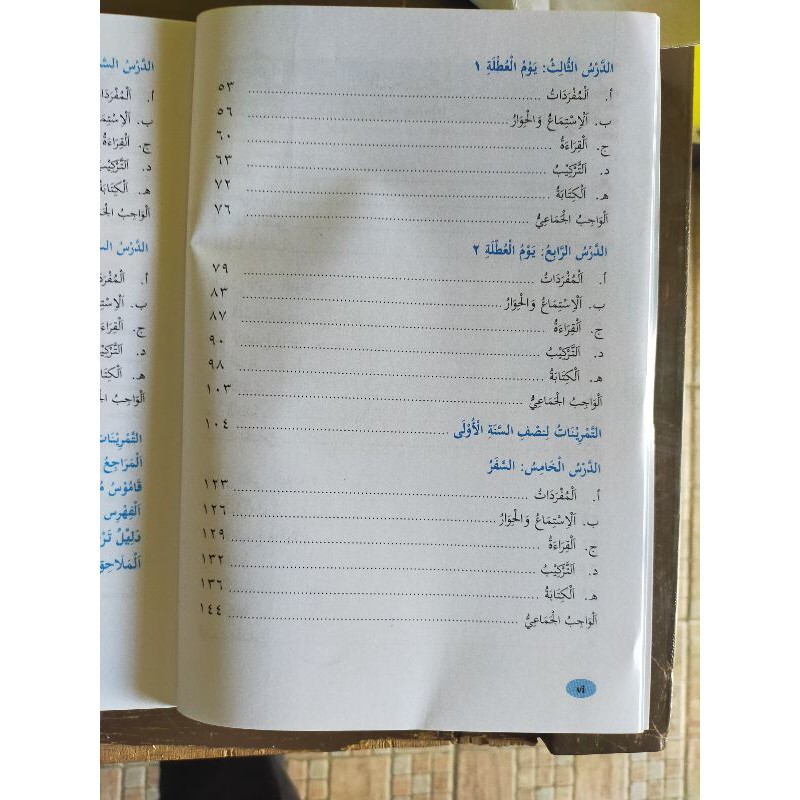 الدَّرْسُ الثَّالِثُ: يَوْمُ الْعُطْلَةِ ١
أ. اَلْمُفْرَدَاتُ ........ ٥٣
ب. اَلْاِسْتِمَاعُ وَالْحِوَارُ ........ ٥٦
ج. اَلْقِرَاءَةُ ........ ٦٠
د. اَلتَّرْكِيْبُ ........ ٦٣
هـ. اَلْكِتَابَةُ ........ ٧٢
اَلْوَاجِبُ الْجَمَاعِيُّ ........ ٧٦
الدَّرْسُ الرَّابِعُ: يَوْمُ الْعُطْلَةِ ٢
أ. اَلْمُفْرَدَاتُ ........ ٧٩
ب. اَلْاِسْتِمَاعُ وَالْحِوَارُ ........ ٨٣
ج. اَلْقِرَاءَةُ ........ ٨٧
د. اَلتَّرْكِيْبُ ........ ٩٠
هـ. اَلْكِتَابَةُ ........ ٩٨
اَلْوَاجِبُ الْجَمَاعِيُّ ........ ١٠٣
التَّمْرِيْنَاتُ لِنِصْفِ السَّنَةِ الْأُوْلَى ........ ١٠٤
الدَّرْسُ الْخَامِسُ: السَّفَرُ
أ. اَلْمُفْرَدَاتُ ........ ١٢٣
ب. اَلْاِسْتِمَاعُ وَالْحِوَارُ ........ ١٢٦
ج. اَلْقِرَاءَةُ ........ ١٢٩
د. اَلتَّرْكِيْبُ ........ ١٣٢
هـ. اَلْكِتَابَةُ ........ ١٣٦
اَلْوَاجِبُ الْجَمَاعِيُّ ........ ١٤٤
vi
الدَّرْسُ
أ. اَلْمُفْرَدَا
ب. اَلْاِسْتِمَا
ج. اَلْقِرَاءَةُ
د. اَلتَّرْكِيْبُ
هـ. اَلْكِتَابَةُ
اَلْوَاجِبُ
الدَّرْسُ
أ. اَلْمُفْرَدَ
ب. اَلْاِسْتِمَ
ج. اَلْقِرَاءَ
د. اَلتَّرْكِيْبُ
هـ. اَلْكِتَابَ
اَلْوَاجِبُ
التَّمْرِيْنَاتُ
اَلْمَرَاجِعُ
قَامُوْسُ
اَلْفِهْرِس
دَلِيْلُ
اَلْمَلَاحِق